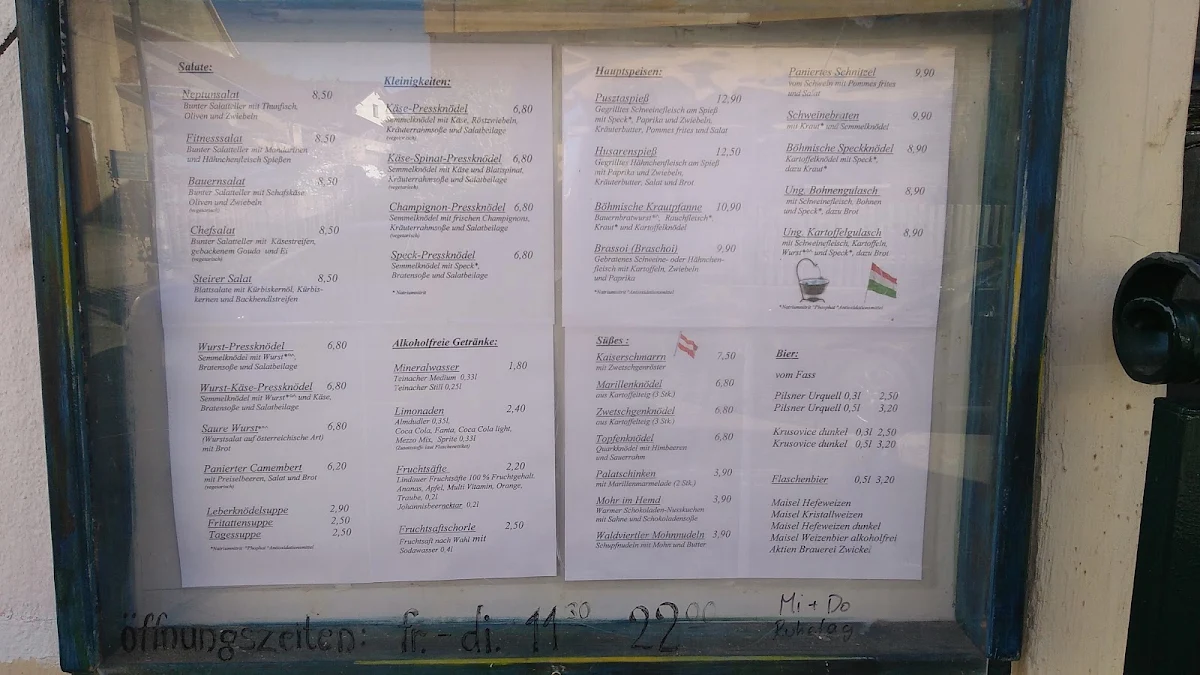 Salate:
Neptunsalat 8,50
Bunter Salatteller mit Thunfisch,
Oliven und Zwiebeln
Fitnesssalat 8,50
Bunter Salatteller mit Mandarinen
und Hähnchenfleisch Spießen
Bauernsalat 8,50
Bunter Salatteller mit Schafskäse
Oliven und Zwiebeln
(vegetarisch)
Chefsalat 8,50
Bunter Salatteller mit Käsestreifen,
gebackenem Gouda und Ei
(vegetarisch)
Steirer Salat 8,50
Blattsalate mit Kürbiskernöl, Kürbis-
kernen und Backhendlstreifen
Kleinigkeiten:
Käse-Pressknödel 6,80
Semmelknödel mit Käse, Röstzwiebeln,
Kräuterrahmsoße und Salatbeilage
(vegetarisch)
Käse-Spinat-Pressknödel 6,80
Semmelknödel mit Käse und Blattspinat,
Kräuterrahmsoße und Salatbeilage
(vegetarisch)
Champignon-Pressknödel 6,80
Semmelknödel mit frischen Champignons,
Kräuterrahmsoße und Salatbeilage
(vegetarisch)
Speck-Pressknödel 6,80
Semmelknödel mit Speck*,
Bratensoße und Salatbeilage
* Natriumnitrit
Hauptspeisen:
Pusztaspieß 12,90
Gegrilltes Schweinefleisch am Spieß
mit Speck*, Paprika und Zwiebeln,
Kräuterbutter, Pommes frites und Salat
Husarenspieß 12,50
Gegrilltes Hähnchenfleisch am Spieß
mit Paprika und Zwiebeln,
Kräuterbutter, Salat und Brot
Böhmische Krautpfanne 10,90
Bauernbratwurst Rauchfleisch*,
Kraut* und Kartoffelknödel
Brassoi (Braschoi) 9,90
Gebratenes Schweine- oder Hähnchen-
fleisch mit Kartoffeln, Zwiebeln
und Paprika
*Natriumnitrit *Antioxidationsmittel
Paniertes Schnitzel 9,90
vom Schwein mit Pommes frites
und Salat
Schweinebraten 9,90
mit Kraut* und Semmelknödel
Böhmische Speckknödel 8,90
Kartoffelknödel mit Speck*,
dazu Kraut*
Ung. Bohnengulasch 8,90
mit Schweinefleisch, Bohnen
und Speck*, dazu Brot
Ung. Kartoffelgulasch 8,90
mit Schweinefleisch, Kartoffeln,
Wurst und Speck*, dazu Brot
*Natriumnitrit *Phosphat *Antioxidationsmittel
Wurst-Pressknödel 6,80
Semmelknödel mit Wurst
Bratensoße und Salatbeilage
Wurst-Käse-Pressknödel 6,80
Semmelknödel mit Wurst und Käse,
Bratensoße und Salatbeilage
Saure Wurst 6,80
(Wurstsalat auf österreichische Art)
mit Brot
Panierter Camembert 6,20
mit Preiselbeeren, Salat und Brot
(vegetarisch)
Leberknödelsuppe 2,90
Fritattensuppe 2,50
Tagessuppe 2,50
*Natriumnitrit *Phosphat *Antioxidationsmittel
Alkoholfreie Getränke:
Mineralwasser 1,80
Teinacher Medium 0,33l
Teinacher Still 0,25l
Limonaden 2,40
Almdudler 0,35l
Coca Cola, Fanta, Coca Cola light,
Mezzo Mix, Sprite 0,33l
Fruchtsäfte 2,20
Lindauer Fruchtsäfte 100 % Fruchtgehalt.
Ananas, Apfel, Multi Vitamin, Orange,
Traube, 0,2l
Johannisbeernektar 0,2l
Fruchtsaftschorle 2,50
Fruchtsaft nach Wahl mit
Sodawasser 0,4l
Süßes :
Kaiserschmarrn 7,50
mit Zwetschgenröster
Marillenknödel 6,80
aus Kartoffelteig (3 Stk.)
Zwetschgenknödel 6,80
aus Kartoffelteig (3 Stk.)
Topfenknödel 6,80
Quarkknödel mit Himbeeren
und Sauerrahm
Palatschinken 3,90
mit Marillenmarmelade (2 Stk.)
Mohr im Hemd 3,90
Warmer Schokoladen-Nusskuchen
mit Sahne und Schokoladensoße
Waldviertler Mohnnudeln 3,90
Schupfnudeln mit Mohn und Butter
Bier:
vom Fass
Pilsner Urquell 0,3l 2,50
Pilsner Urquell 0,5l 3,20
Krusovice dunkel 0,3l 2,50
Krusovice dunkel 0,5l 3,20
Flaschenbier 0,5l 3,20
Maisel Hefeweizen
Maisel Kristallweizen
Maisel Hefeweizen dunkel
Maisel Weizenbier alkoholfrei
Aktien Brauerei Zwickel
öffnungszeiten: fr.-di. 11 30 22 00
Mi + Do
Ruhetag